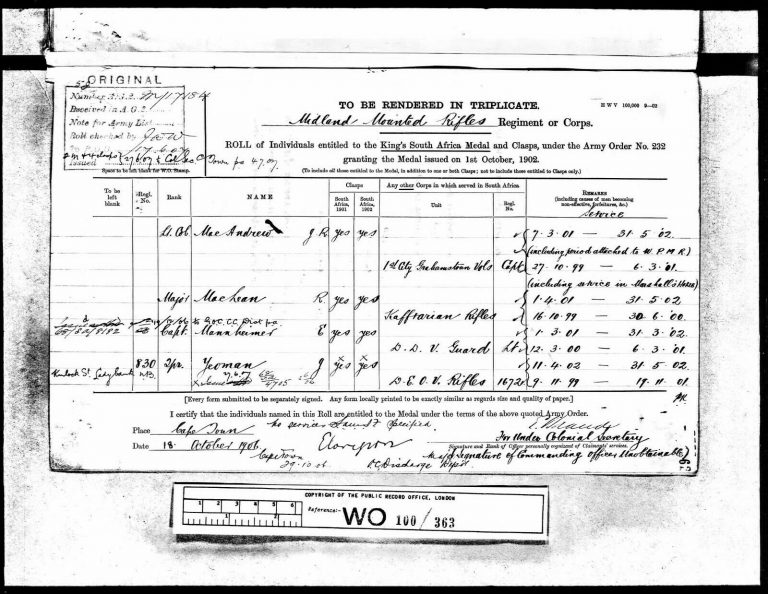 ORIGINAL
Number
Received in A.G.2
Note for Army List
Roll checked by
Issued
Space to be left blank for W.O. Stamp.
TO BE RENDERED IN TRIPLICATE.
H W V 100,000 9—02
Midland Mounted Rifles Regiment or Corps.
ROLL of Individuals entitled to the King's South Africa Medal and Clasps, under the Army Order No. 232
granting the Medal issued on 1st October, 1902.
(To include all those entitled to the Medal, in addition to one or both Clasps; not to include those entitled to Clasps only.)
To be left blank
Regl. No.
Rank
NAME
Clasps
South Africa, 1901
South Africa, 1902
Any other Corps in which served in South Africa
Unit
Regl. No.
REMARKS
(including causes of men becoming non-effective, forfeitures, &c.)
Service
Lt. Col. MacAndrew J R yes yes 7. 3. 01 — 31. 5. '02
(including period attached to W. P. M. R.)
1st City Grahamstown Vols Capt 27. 10. 99 — 6. 3. '01.
(including service in Marshall's Horse)
Major Maclean R. yes yes 1. 4. 01 — 31. 5. 02
Kaffrarian Rifles 16. 10. 99 — 30. 6. '00.
Capt. Mannheimer E yes yes 1. 3. 01 — 31. 3. '02
D. D. V. Guard Lt. 12. 3. 00 — 6. 3. '01.
Kinloch St. Ladybank 830 Tpr. Yeoman J yes yes 11. 4. 02 — 31. 5. 02
D. E. O. V. Rifles 1672 9. 11. 99 — 19. 11. 01.
[Every form submitted to be separately signed. Any form locally printed to be exactly similar as regards size and quality of paper.]
I certify that the individuals named in this Roll are entitled to the Medal under the terms of the above quoted Army Order.
Place Cape Town
for services
for Under Colonial Secretary
Date 18. October 1906.
Signature and Rank of Officer personally cognizant of Claimants' services.
(Signature of Commanding Officer Unobtainable)
Cape Town
29. 10. 06
O. C. Discharge Depot
COPYRIGHT OF THE PUBLIC RECORD OFFICE, LONDON
1 2 3 4 5 6
Reference:-
WO 100/363